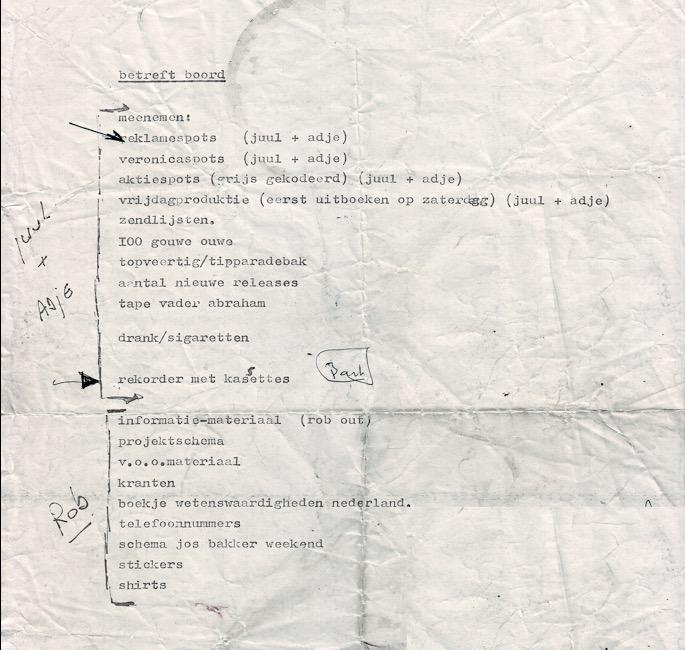 betreft boord
meenemen:
reklamespots (juul + adje)
veronicaspots (juul + adje)
aktiespots (grijs gekodeerd) (juul + adje)
vrijdagproduktie (eerst uitboeken op zaterdag) (juul + adje)
zendlijsten.
I00 gouwe ouwe
topveertig/tipparadebak
aantal nieuwe releases
tape vader abraham
juul
+
Adje
drank/sigaretten
Bart
rekorder met kassettes
informatie-materiaal (rob out)
projektschema
v.o.o.materiaal
kranten
boekje wetenswaardigheden nederland.
Rob
telefoonnummers
schema jos bakker weekend
stickers
shirts